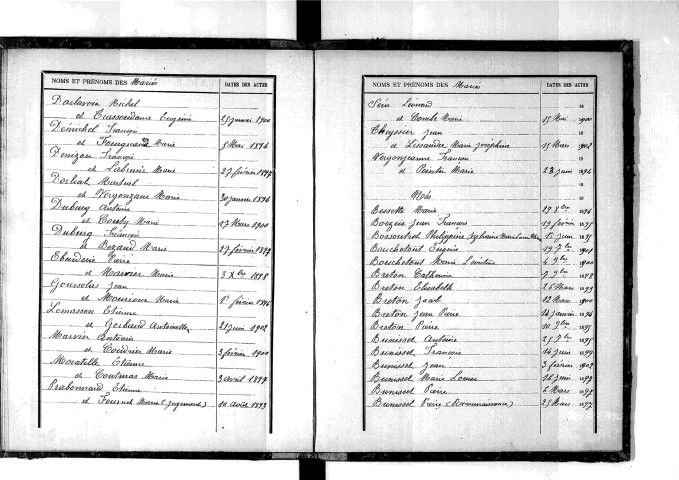 NOMS ET PRÉNOMS DES Mariés DATES DES ACTES
Darlavoix Michel
et Crassoudanne Eugénie 25 janvier 1900
Demichel François
et Fourgnaud Marie 5 Mars 1896
Denizou François
et Labrune Marie 27 février 1897
Dorliat Martial
et Vergonzane Marie 30 janvier 1896
Duburg Antoine
et Coudy Marie 17 Mars 1900
Duburg François
et Bozaud Marie 27 février 1899
Ebaudeine Pierre
et Marvier Marie 3 Xbre 1898
Goursolas Jean
et Mourioux Marie 1er février 1896
Lomasson Etienne
et Gerbaud Antoinette 21 juin 1902
Marvier Antonin
et Coudrier Marie 3 février 1900
Moratille Etienne
et Couturas Marie 3 avril 1899
Prabonnaud Etienne
et Fournet Marie (jugement) 10 août 1899
NOMS ET PRÉNOMS DES Mariés DATES DES ACTES
Séru Léonard
et Combe Marie 15 Mai 1900
Cheyssier Jean
et Lissandre Marie Joséphine 15 Mars 1902
Vergonjeanne François
et Peintur Marie 23 juin 1896
Nés
Bessette Marie 29 8bre 1896
Boizeix Jean François 19 février 1895
Bossoutrot Philippine Sylvaine 11 juin 1895
Bouchetout Eugénie 19 7bre 1901
Bouchetout Marie Léontine 4 9bre 1900
Breton Catherine 7 9bre 1898
Breton Elisabeth 26 Mars 1899
Breton Jacob 22 Mars 1900
Breton Jean Pierre 14 janvier 1896
Breton Pierre 10 9bre 1895
Brunissot Antoine 25 7bre 1895
Brunissot François 14 juin 1899
Brunissot Jean 3 février 1902
Brunissot Marie Louise 16 juin 1899
Brunissot Pierre 6 Mars 1897
Brunissot Pierre (Reconnaissance) 25 Mars 1897